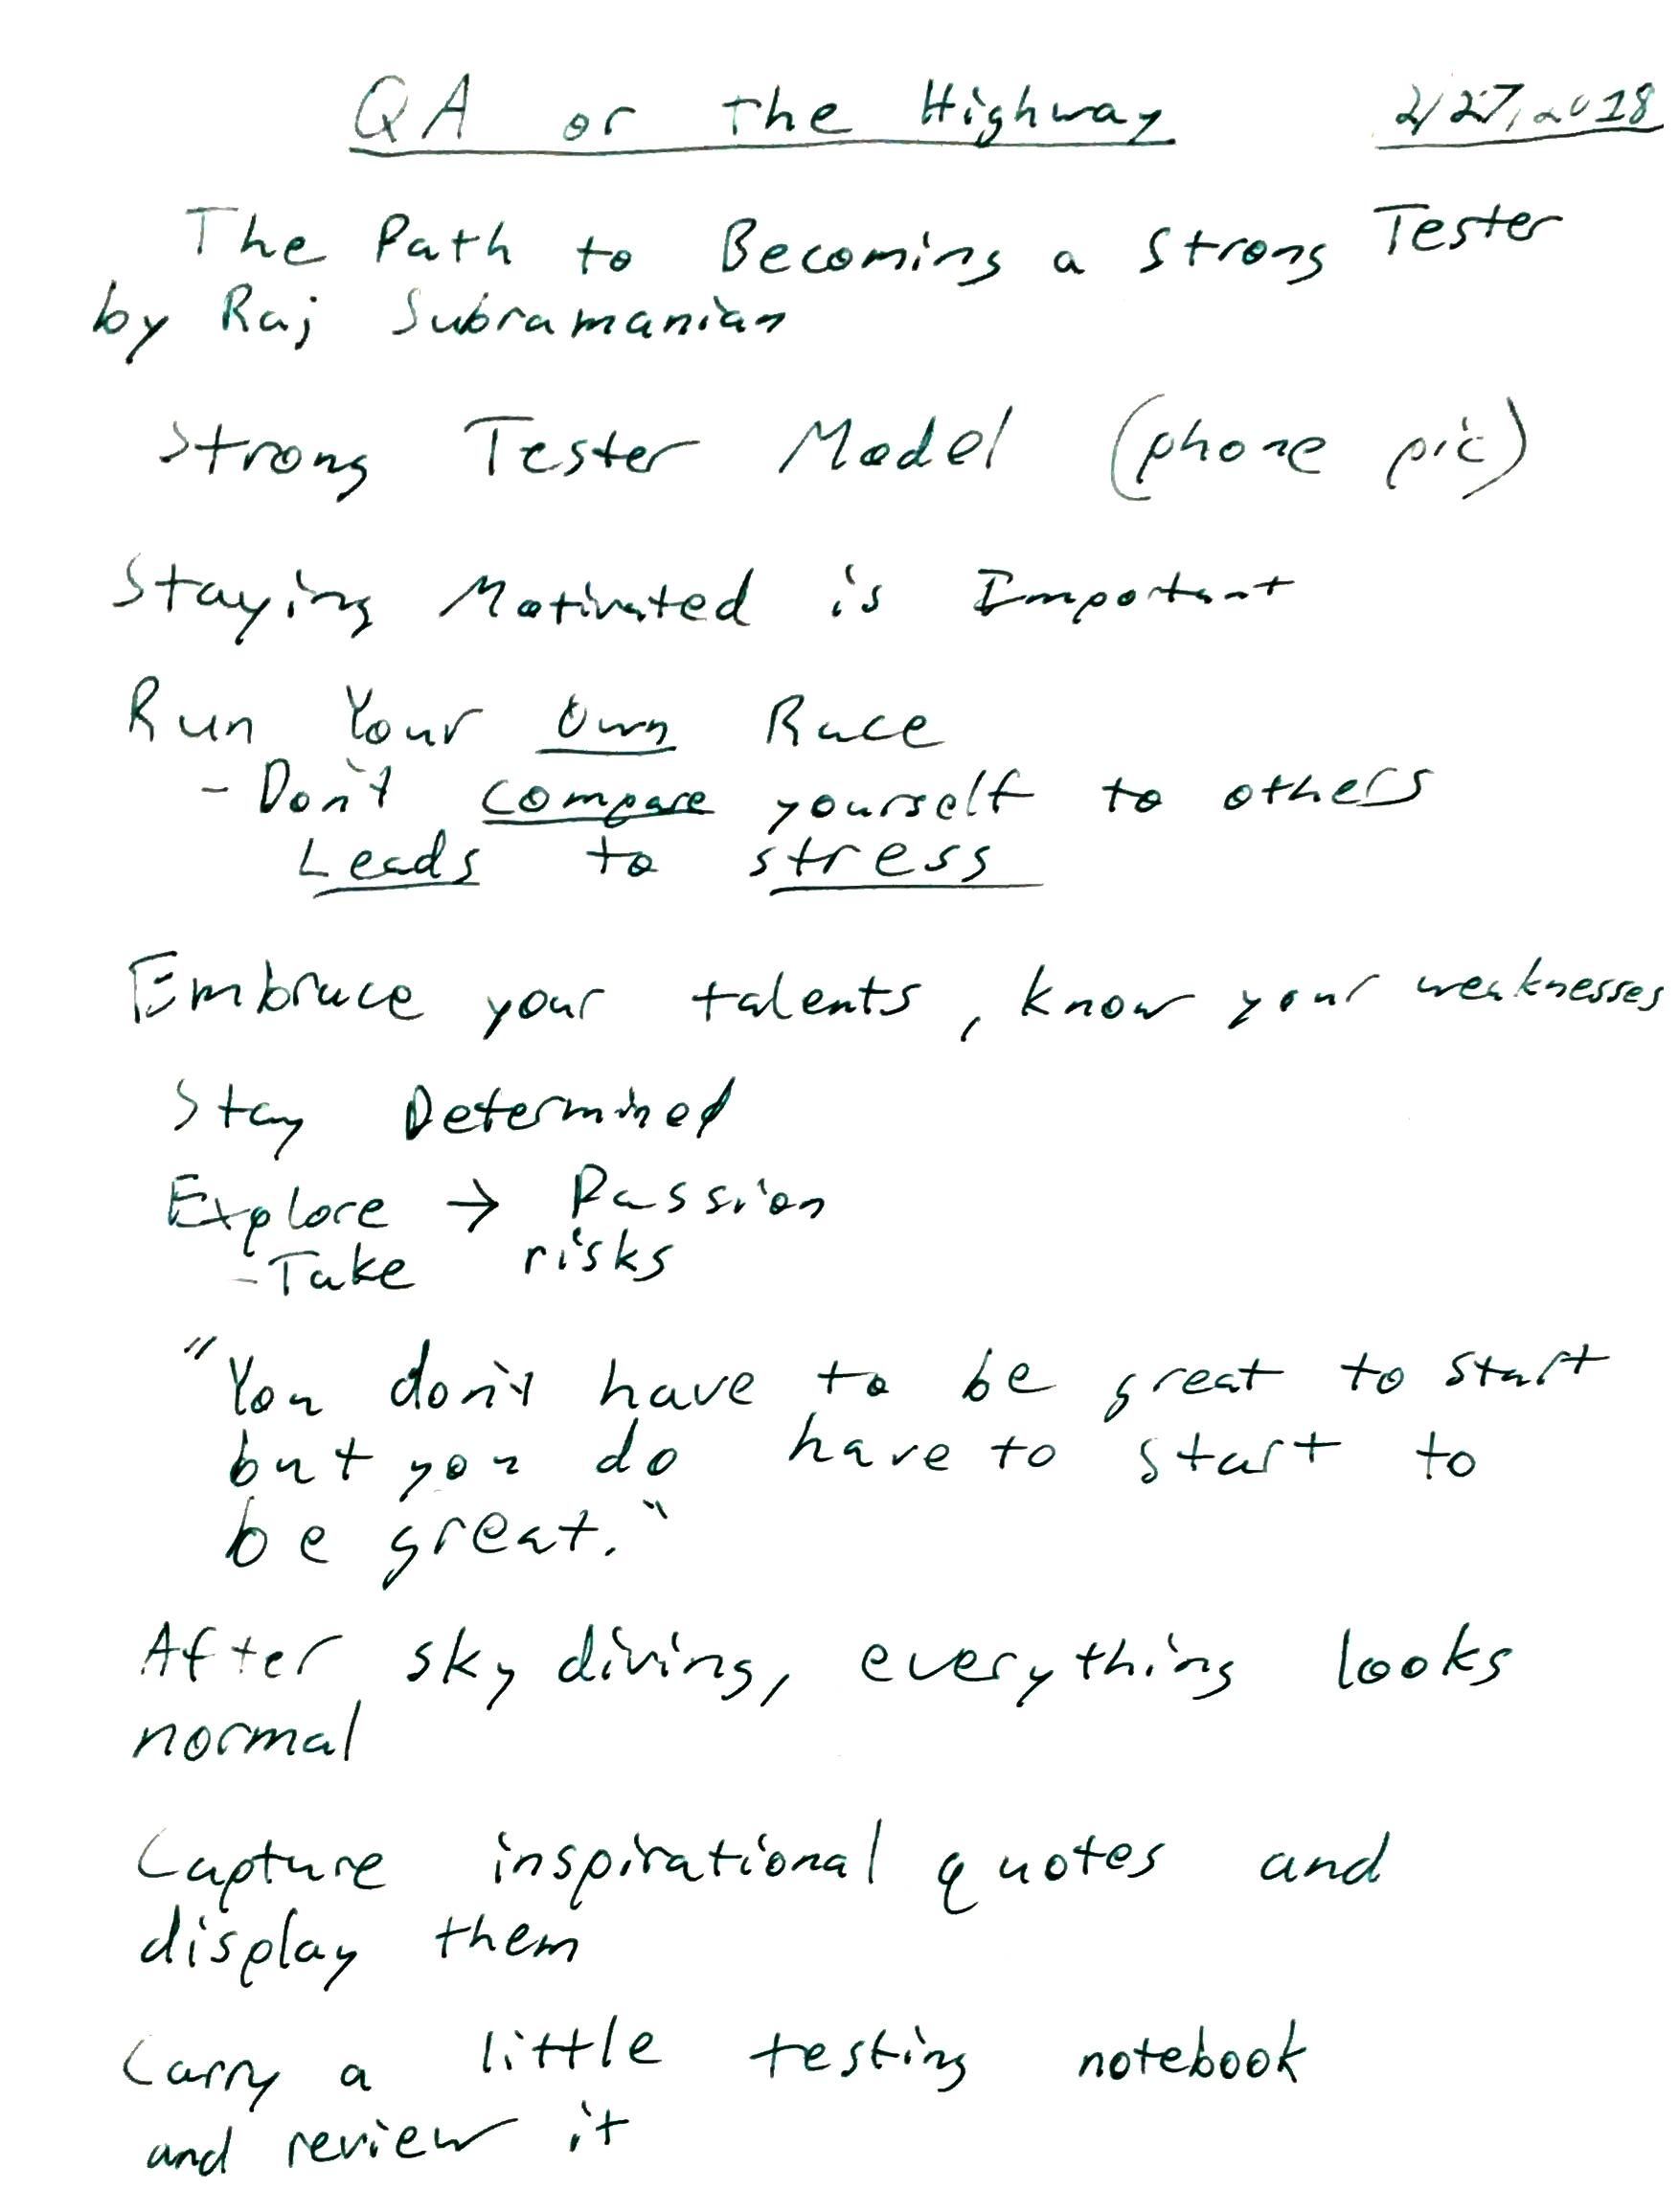 QA or the Highway 2/27/2018
The Path to Becoming a Strong Tester
by Raj Subramanian
Strong Tester Model (phone pic)
Staying Motivated is Important
Run Your Own Race
- Don't compare yourself to others
Leads to stress
Embrace your talents, know your weaknesses
Stay Determined
Explore → Passion
- Take risks
"You don't have to be great to start
but you do have to start to
be great."
After sky diving, everything looks
normal
Capture inspirational quotes and
display them
Carry a little testing notebook
and review it